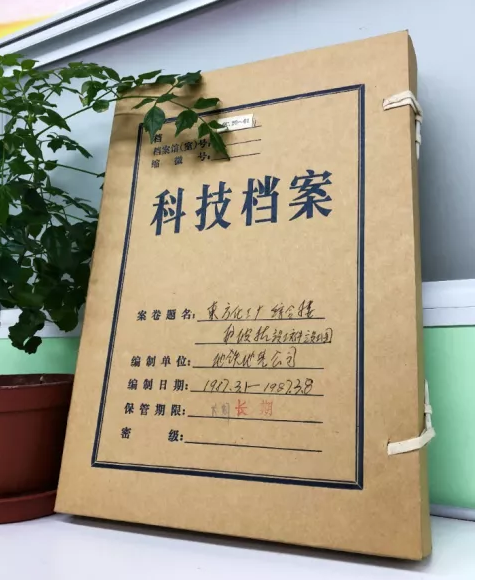 档
档案馆(案)号:
缩 微 号:
科技档案
案卷题名: 东方化工厂综合楼
编制单位: 地铁地基公司
编制日期: 1987.3.1-1987.3.8
保管期限: 长期
密 级: